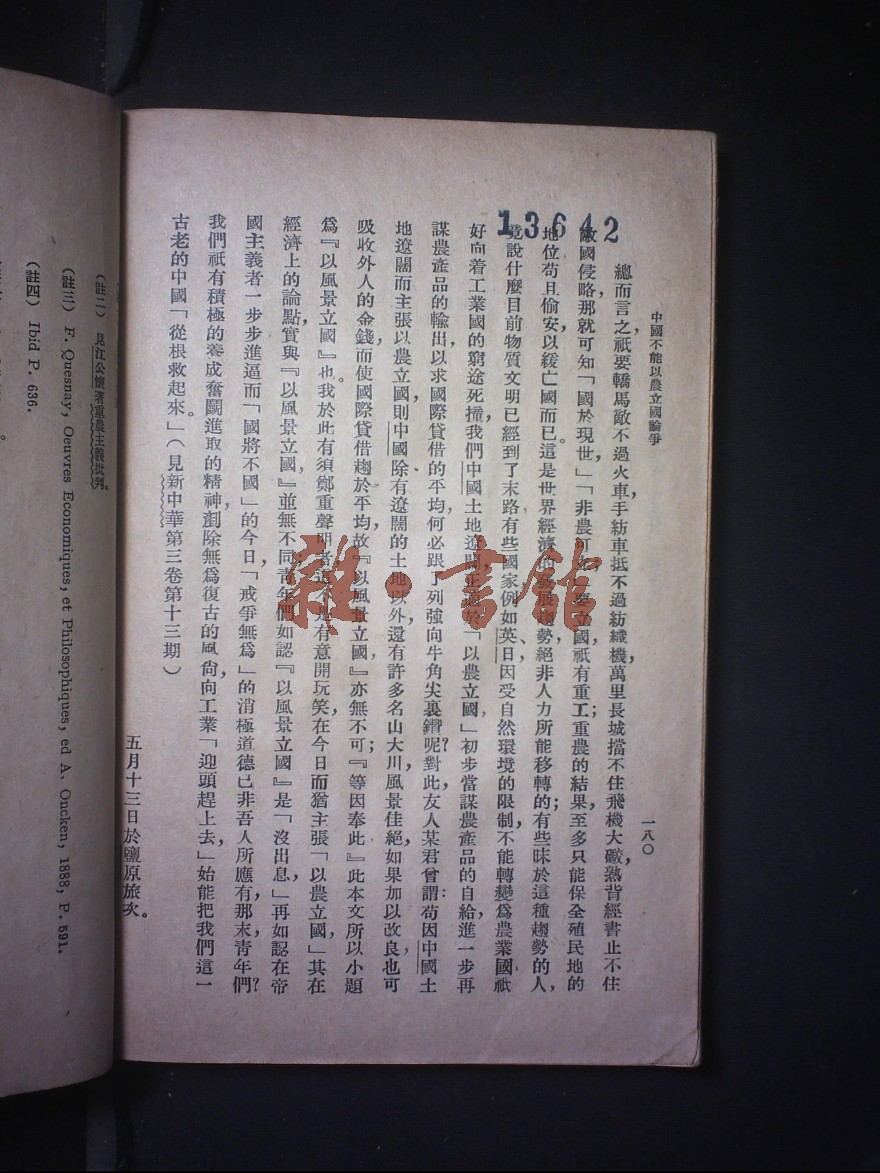 中國不能以農立國論爭
一八〇
13642
總而言之，祇要轎馬敵不過火車，手紡車抵不過紡織機，萬里長城擋不住飛機大礮，熟背經書止不住
敵國侵略，那就可知「國於現世」，「非農可立」，要立國祇有重工；重農的結果，至多只能保全殖民地的
地位，苟且偷安，以緩亡國而已。這是世界經濟的發展趨勢，絕非人力所能移轉的；有些昧於這種趨勢的人，
竟說什麼目前物質文明已經到了末路，有些國家例如英、日，因受自然環境的限制，不能轉變爲農業國，祇
好向着工業國的窮途死撞，我們中國土地遼闊，正適於「以農立國」，初步當謀農產品的自給，進一步再
謀農產品的輸出，以求國際貸借的平均，何必跟了列強向牛角尖裏鑽呢？對此，友人某君曾謂：苟因中國土
地遼闊而主張以農立國，則中國除有遼闊的土地以外，還有許多名山大川，風景佳絕，如果加以改良，也可
吸收外人的金錢，而使國際貸借趨於平均，故『以風景立國』亦無不可；『等因奉此』，此本文所以小題
爲『以風景立國』也。我於此有須鄭重聲明者，這不是有意開玩笑，在今日而猶主張「以農立國」，其在
經濟上的論點，實與『以風景立國』並無不同；青年們如認『以風景立國』是「沒出息，」再如認在帝
國主義者一步步進逼而「國將不國」的今日，「戒爭無爲」的消極道德已非吾人所應有，那末，青年們？
我們祇有積極的養成奮鬭進取的精神，剷除無爲復古的風尚，向工業「迎頭趕上去，」始能把我們這一
古老的中國「從根救起來。」（見新中華第三卷第十三期）
五月十三日於鹽原旅次。
（註二） 見江公懷著重農主義批判。
（註三） F. Quesnay, Oeuvres Economiques, et Philosophiques, ed A. Oncken, 1888, P. 591.
（註四） Ibid P. 636.